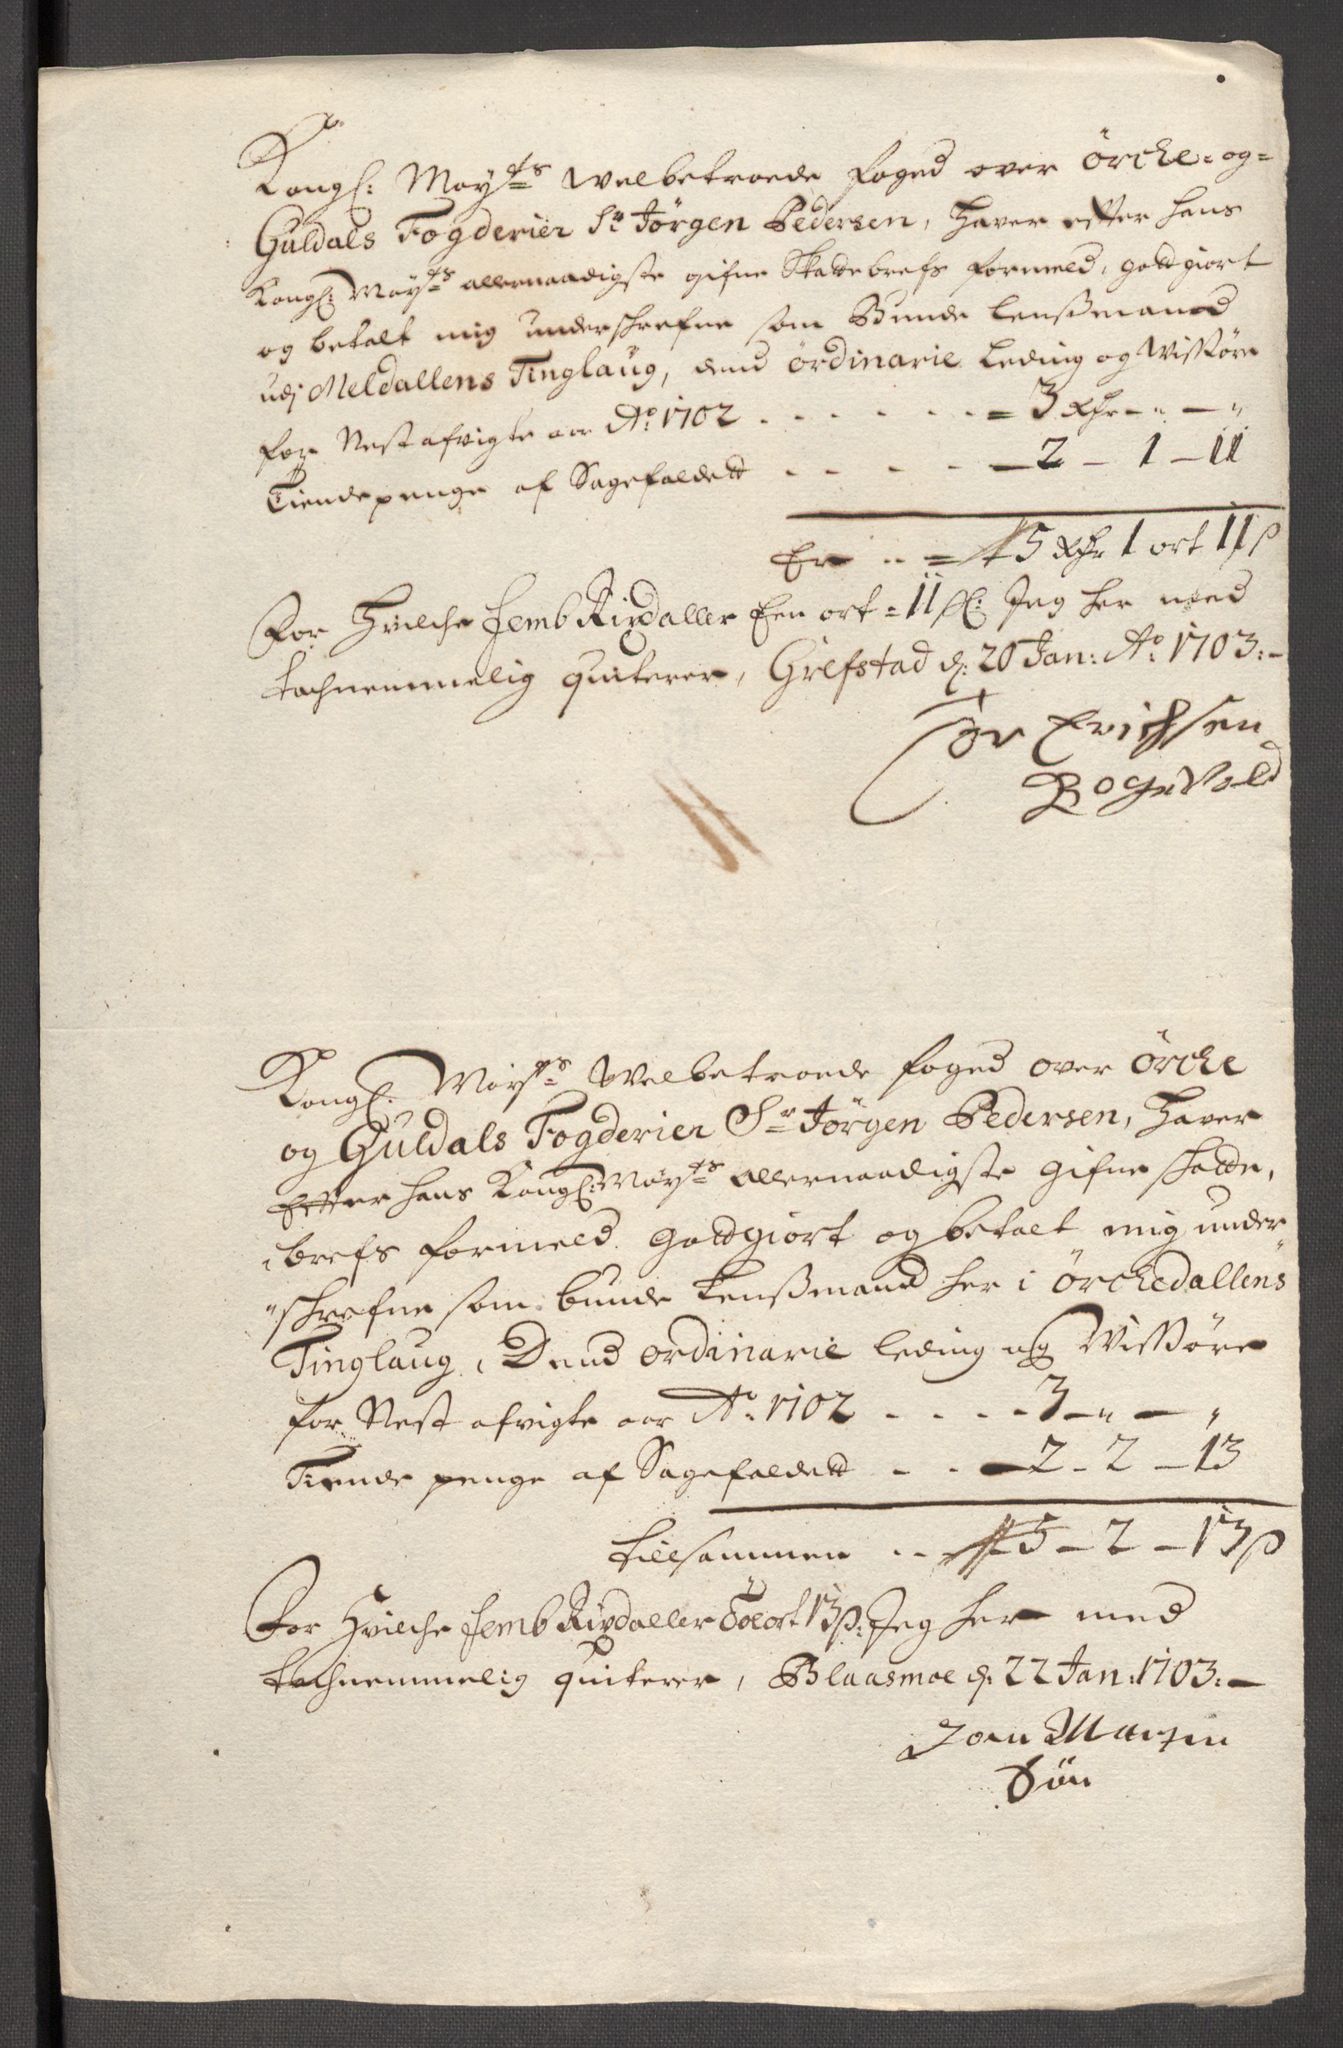 Kongl: Mayts Welbetroede foged over Örcke- og-
Guldals Fogderier Sr Jörgen Pedersen, Hafver efter hans
Kongl: Mayts allernaadigste gifne Skattebrefs formeld, godtgiort
og betalt mig underschrefne som Bunde Lenßmand
udj Meldallens Tinglaug, dend ordinarie Leding og Wissöre
for Nest afvigte aar Ao: 1702 . . . . . . = 3 Rdr - " - "
Tiendepenge af Sagefaldet . . . . . - 2 - 1 - 11
Er .. = 5 Rdr 1 ort 11 s
For Hvilche femb Rixdaller Een ort = 11 s: Jeg her med
tachnemmelig quiterer, Grefstad d: 20 Jan: Ao: 1703:-
Tor Erichsen
Bogevold
Kongl: Mayts Welbetroede foged over Örcke
og Guldals Fogderier Sr Jörgen Pedersen, Hafver
Efter hans Kongl: Mayts allernaadigste gifne skatte,
brefs formeld, godtgiort og betalt mig under
"schrefne som bunde Lenßmand her i Örckedallens
Tinglaug, Dend ordinarie leding og Wissöre
for Nest afvigte aar Ao: 1702 . . . . - 3 - " - "
Tiende penge af Sagefaldet . . . - 2 - 2 - 13
tilsammen . . 5 - 2 - 13 s
For Hvilche femb Rixdaller Toe ort 13 s: Jeg her med
tachnemmelig quiterer, Blaasmoe d: 22 Jan: 1703:-
Joen
Sön